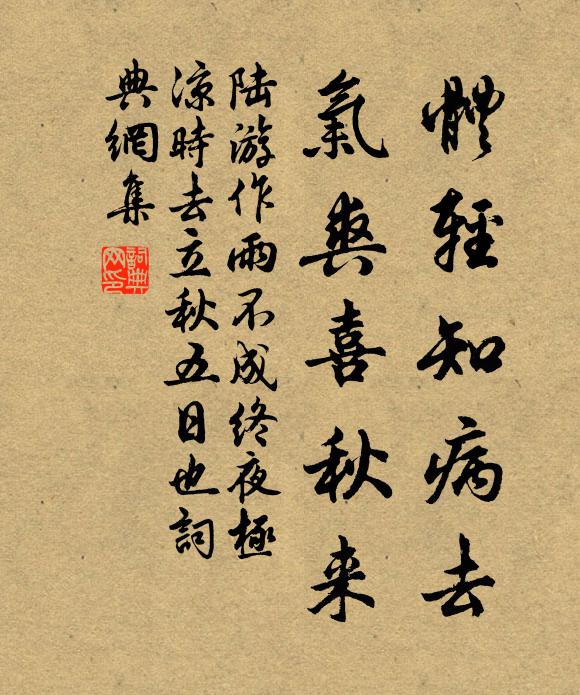 體輕知病去
氣爽喜秋来
陆游作雨不成终夜極
凉時去立秋五日也詞
典網集
詞典網印